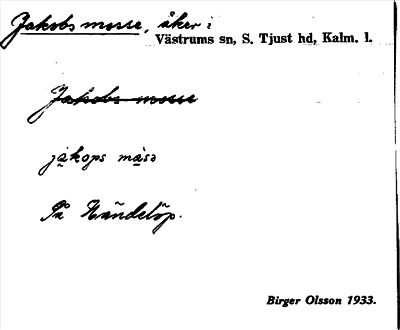 Jakobs mosse, åker i
Västrums sn, S. Tjust hd, Kalm. l.
Jakobs mosse
jạkops mạsə
På Händelöp.
Birger Olsson 1933.